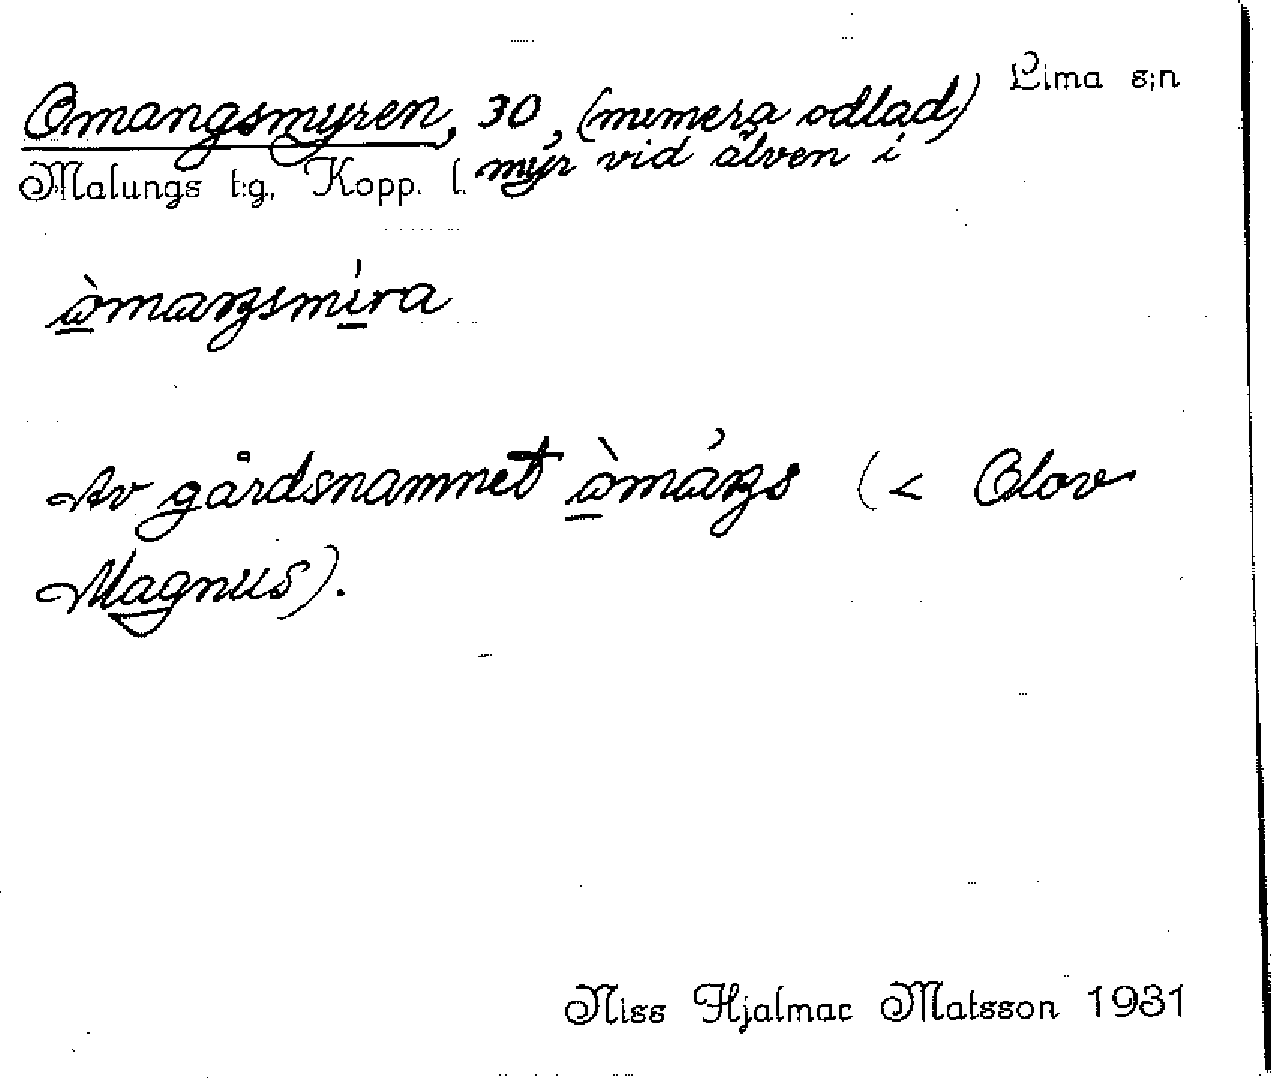 Omangsmyren, 30, (numera odlad) Lima s:n
Malungs t:g. Kopp. l. myr vid älven i
òmaŋsmíra
Av gårdsnamnet òmáŋs (< Olov
Magnus).
Niss Hjalmar Matsson 1931